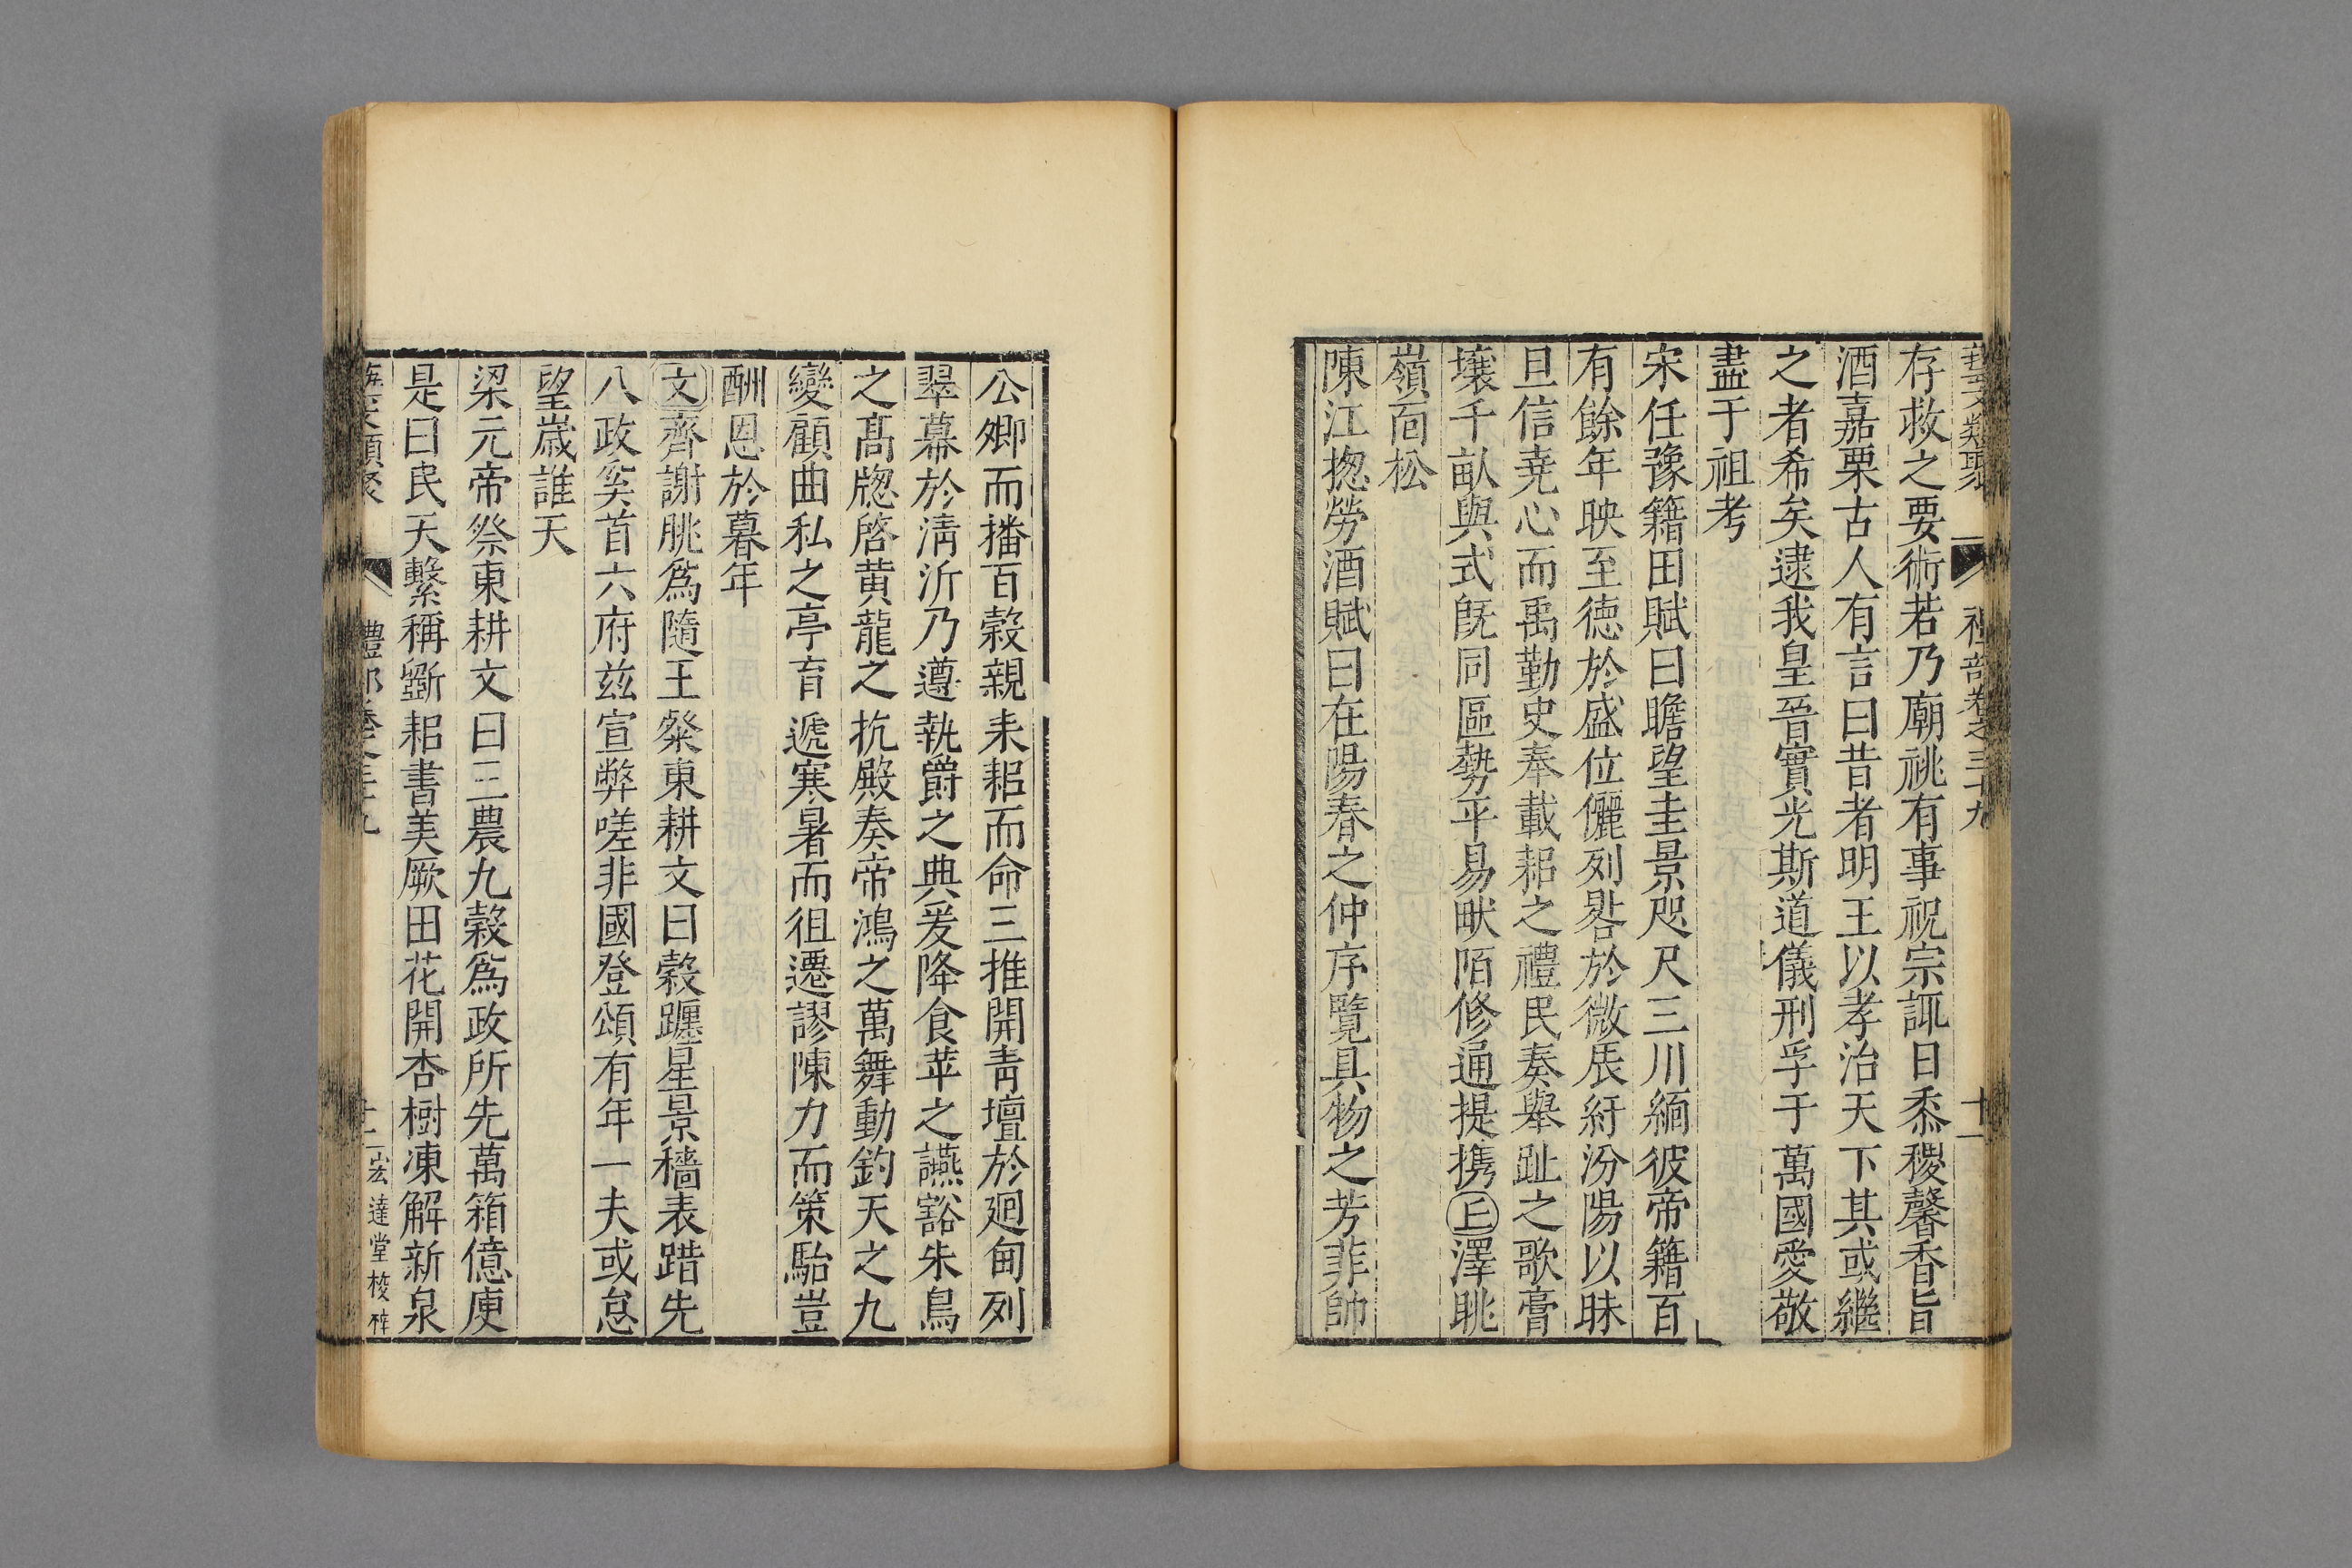 藝文類聚 禮部卷之三十九 十一
存救之要術若乃廟祧有事祝宗諏日黍稷馨香旨
酒嘉栗古人有言曰昔者明王以孝治天下其或繼
之者希矣逮我皇晉實光斯道儀刑孚于萬國愛敬
盡于祖考
宋任豫籍田賦曰瞻望圭景咫尺三川緬彼帝籍百
有餘年映至德於盛位儷列畧於微辰紆汾陽以昧
旦信堯心而禹勤史奉載耜之禮民奏舉趾之歌膏
壤千畝與式既同區勢平易畎陌修通提携上澤眺
嶺面松
陳江揔勞酒賦曰在陽春之仲序覽具物之芳菲帥
公卿而播百穀親耒耜而命三推開青壇於廻甸列
翠幕於淸沂乃遵執爵之典爰降食苹之讌豁朱鳥
之髙牎啓黄龍之抗殿奏帝鴻之萬舞動釣天之九
變顧曲私之亭育遞寒暑而徂遷謬陳力而策駘豈
酬恩於暮年
文齊謝朓爲隨王祭東耕文曰穀躔星景穡表踖先
八政奚首六府兹宣弊嗟非國登頌有年一夫或怠
望歲誰天
梁元帝祭東耕文曰三農九穀爲政所先萬箱億庾
是曰民天繫稱斵耜書美厥田花開杏樹凍解新泉
藝文類聚 禮部卷之三十九 十二 宏達堂校梓